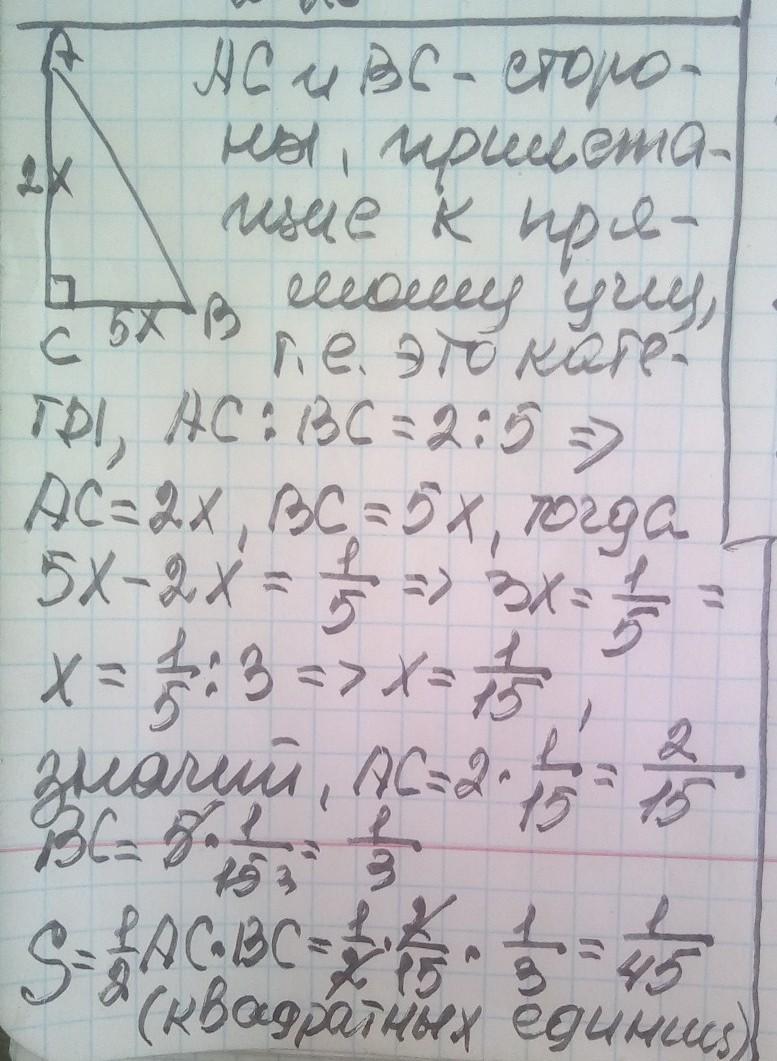 A
2x
C
5x
B
AC и BC - сторо-
ны, прилежа-
щие к пря-
мому углу,
т.е. это кате-
ты, AC : BC = 2 : 5 =>
AC = 2x, BC = 5x, тогда
5x - 2x = 1/5 => 3x = 1/5 =
x = 1/5 : 3 => x = 1/15,
значит, AC = 2 · 1/15 = 2/15
BC = 5 · 1/15 3 = 1/3
S = 1/2 AC · BC = 1/2 · 2/15 · 1/3 = 1/45
(квадратных единиц)